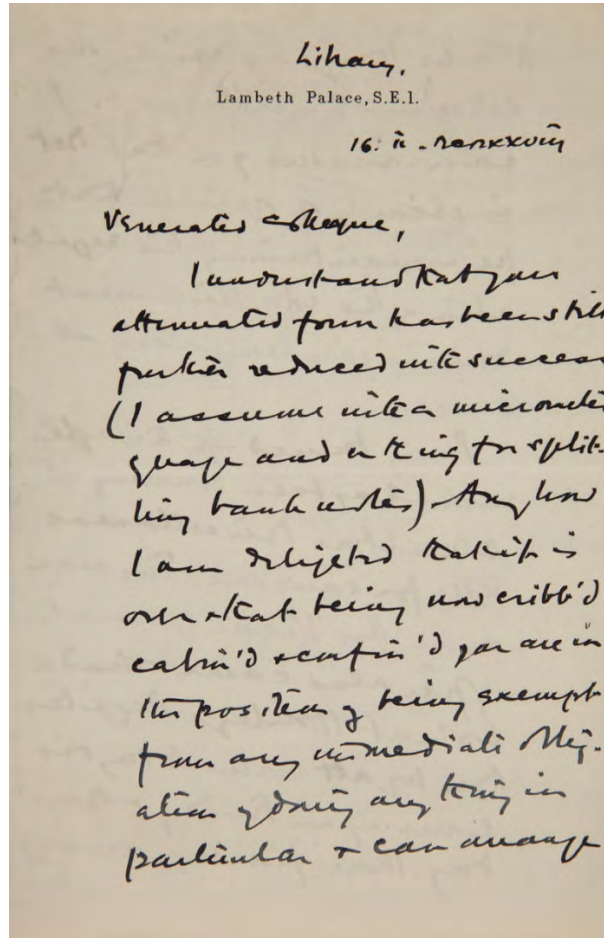 Library,
Lambeth Palace, S.E.1.
16. ii.
Venerated Colleague,
I understand that your
attenuated form has been still
further reduced with success
(I assume with a micrometer
guage and a thing for split-
ting bank notes). Anyhow
I am delighted that it is
over & that being now cribb'd
cabin'd & confin'd you are in
the position of being exempt
from any immediate oblig-
ation of doing anything in
particular & can arrange